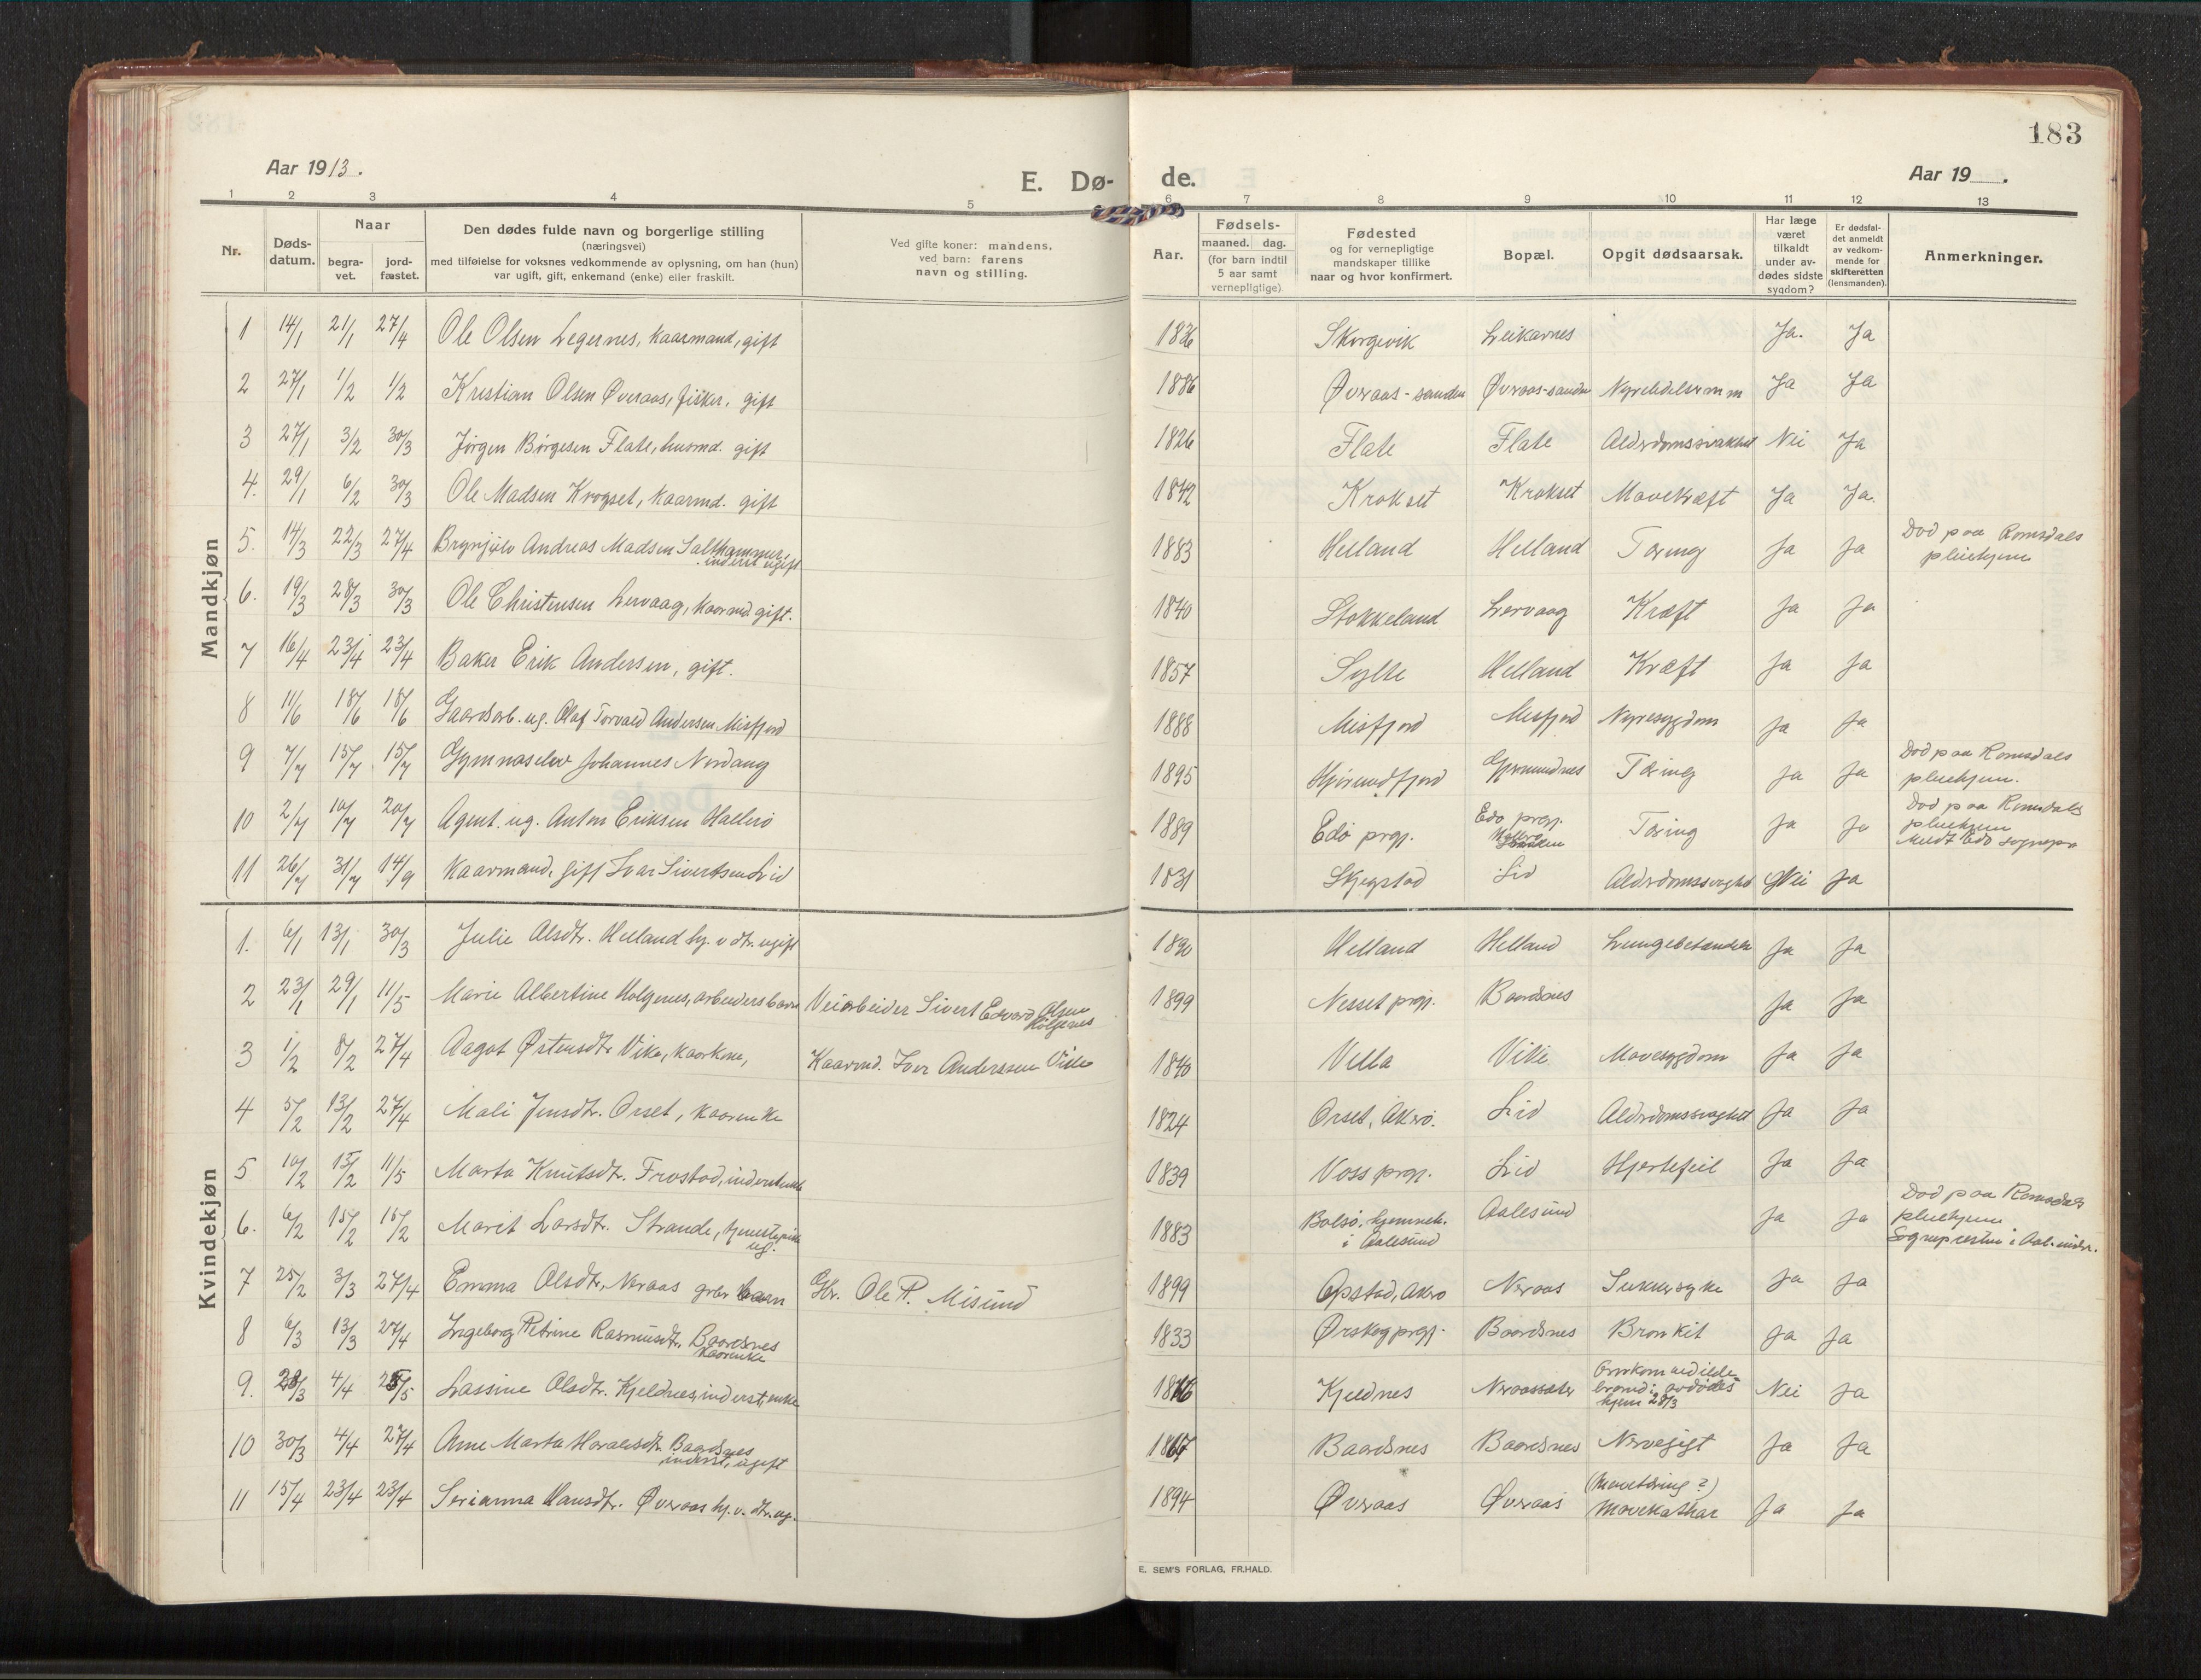 183
Aar 1913.
E. Dø-
de.
Aar 19 .
1 2 3 4 5 6 7 8 9 10 11 12 13
Nr.
Døds-
datum.
Naar
begra-
vet.
jord-
fæstet.
Den dødes fulde navn og borgerlige stilling
(næringsvei)
med tilføielse for voksnes vedkommende av oplysning, om han (hun)
var ugift, gift, enkemand (enke) eller fraskilt.
Ved gifte koner: mandens,
ved barn: farens
navn og stilling.
Aar.
Fødsels-
maaned. dag.
(for barn indtil
5 aar samt
vernepligtige)
Fødested
og for vernepligtige
mandskaper tillike
naar og hvor konfirmert.
Bopæl.
Opgit dødsaarsak.
Har læge
været
tilkaldt
under av-
dødes sidste
sygdom?
Er dødsfal-
det anmeldt
av vedkom-
mende for
skifteretten
(lensmanden).
Anmerkninger.
Mandkjøn
1 14/1 21/1 27/4 Ole Olsen Legernes, kaarmand, gift 1836 Skorgevik Leikarnes Ja. Ja
2 27/1 1/2 1/2 Kristian Olsen Øveraas, fisker, gift 1886 Øvraas-sanden Øvraas-sanden Ja Ja
3 27/1 3/2 30/3 Jørgen Börgesen Flate, husmd. gift 1826 Flate Flate Alderdomssvakhet Nei Ja
4. 29/1 6/2 30/3 Ole Madsen Krogset, kaarmd. gift 1842 Krokset Krokset Mavekræft Ja Ja.
5. 14/3 22/3 27/4 Brynjulv Andreas Madsen Salthammer,
inderst ugift 1883 Helland Helland Tæring Ja Ja Død paa Romsdals
pleiehjem
6. 19/3 28/3 30/3 Ole Christensen Lervaag, kaarmd. gift. 1840 Stokkeland Lervaag Kræft Ja Ja
7 16/4 23/4 23/4 Baker Erik Andersen, gift. 1857 Sylte Helland Kræft Ja Ja
8 11/6 18/6 18/6 Gaardsarb. ug. Olaf Torvald Andersen Misfjord 1888 Misfjord Misfjord Nyresygdom Ja Ja
9 7/7 15/7 15/7 Gymnaselev Johannes Nordang 1895 Hjörundfjord Gjermundnes Tæring Ja Ja Död paa Romsdals
pleiehjem.
10 2/7 10/7 20/7 Agent. ug. Anton Eriksen Hallerö 1889 Edö prgj. Edö prgj. Tæring Ja Ja Död paa Romsdals
pleiehjem
Meldt Edö sognepr
11 26/7 31/7 14/9 Kaarmand, gift Ivar Sivertsen Lid 1831 Skjegstad Lid Alderdomssvaghet Nei Ja
Kvindekjøn
1. 6/1 13/1 30/3 Julie Olsdtr. Helland hj. v. dtr. ugift 1890 Helland Helland Lungebetændelse Ja Ja
2 23/1 29/1 11/5 Marie Albertine Holgenes, arbeidersbarn Veiarbeider Sivert Edvard Olsen
Holgenes 1899 Nesset prgj. Baardsnes Ja Ja
3 1/2 8/2 27/4 Aagot Østensdtr. Vike, kaarkone, Kaarmd. Iver Anderssen Vike 1840 Vella Vike Mavesygdom Ja Ja
4 5/2 13/2 27/4 Mali Jensdtr. Orset, kaarenke 1824 Orset, Akerö. Lid Alderdomssvaghet Ja Ja
5 10/2 15/2 11/5 Marta Knutsdtr. Frostad, inderstenke 1839 Voss prgj. Lid Hjertefeil Ja Ja
6. 6/2 15/2 15/2 Marit Larsdtr. Strande, tjenestepike
ug. 1883 Bolsö, hjemmeh.
i Aalesund Aalesund Ja Ja Död paa Romsdals
pleiehjem
Sognepresten i Aal. underr.
7 25/2 3/3 27/4 Emma Olsdtr. Neraas grbr barn Gbr. Ole P. Misund 1899 Opstad, Akerö Neraas Sukkersyke Ja Ja
8 6/3 13/3 27/4 Ingeborg Petrine Rasmusdtr. Baardsnes
kaarenke 1833 Ørskog prgj. Baardsnes Bronkit Ja Ja
9. 28/3 4/4 25/5 Lassine Olsdtr. Kjeldnes, inderst, enke Kjeldnes Neraassæter Omkom ved ilde-
brand i avdødes
hjem 28/3 Nei Ja
10 30/3 4/4 27/4 Ane Marta Haraldsdtr. Baardsnes
inderst, ugift 1867 Baardsnes Baardsnes Nervegigt Ja Ja
11 15/4 23/4 23/4 Serianna Hansdtr. Øveraas hj. v. dtr. ug. 1894 Øveraas Øveraas (Mavetæring?)
Mavekathar Ja Ja
E. SEM'S FORLAG, FR.HALD.